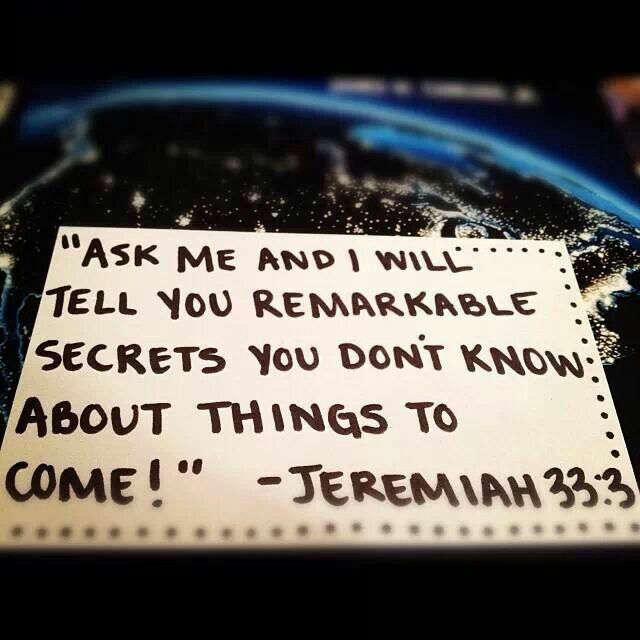 "ASK ME AND I WILL
TELL YOU REMARKABLE
SECRETS YOU DON'T KNOW
ABOUT THINGS TO
COME!" -JEREMIAH 33:3